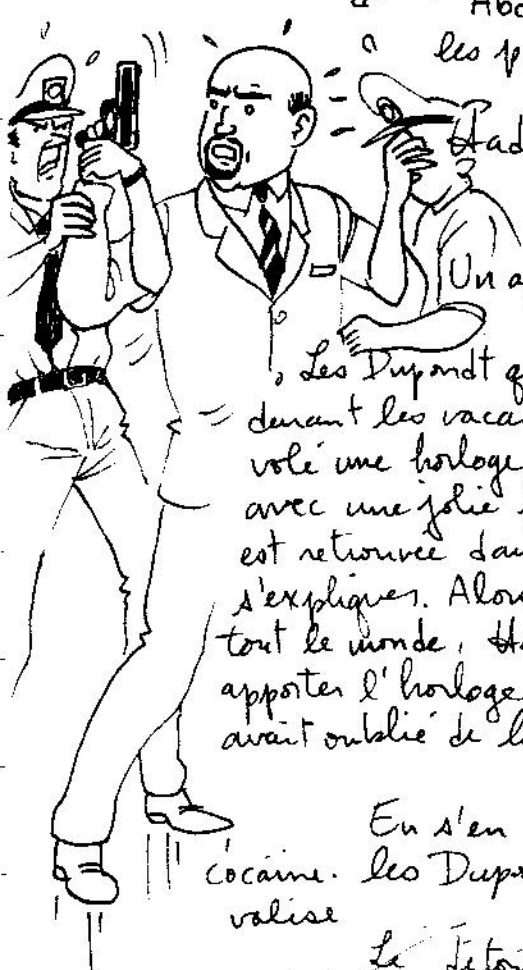 Abo
les p
Had
Un a
Les Dupondt q
durant les vaca
volé une horloge
avec une jolie
est retrouvée dan
s'expliquer. Alors
tout le monde, Ha
apporter l'horloge
avait oublié de l
En s'en
cocaïne. les Dupo
valise
Le